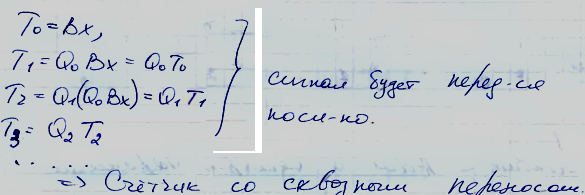 T₀ = Вх,
T₁ = Q₀ Вх = Q₀ T₀
T₂ = Q₁(Q₀ Вх) = Q₁ T₁
T₃ = Q₂ T₂
. . . . .
сигнал будет перед-ся
посл-но.
=> Счётчик со сквозным переносом.